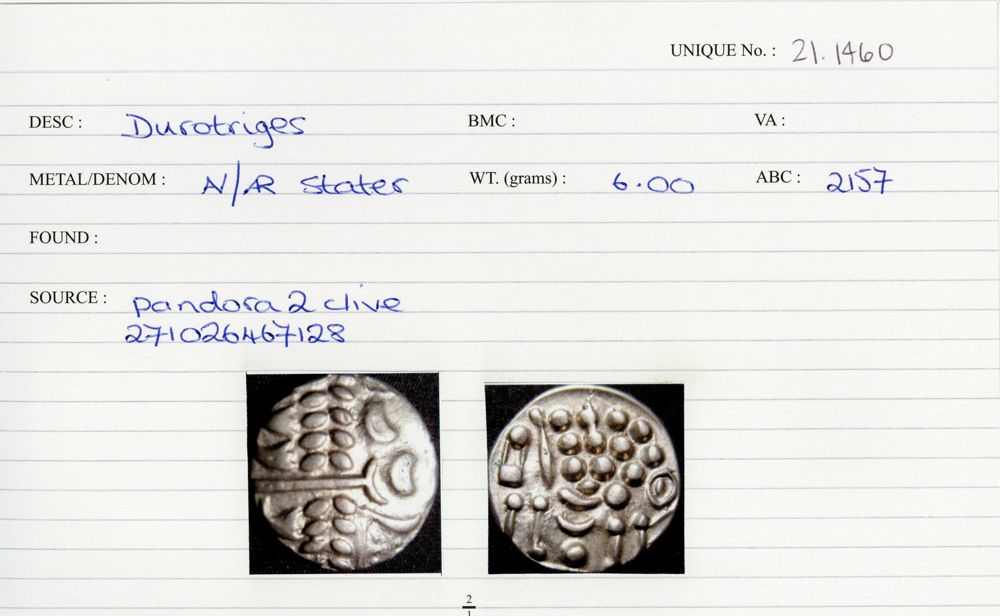 UNIQUE No. : 21.1460
DESC : Durotriges BMC : VA :
METAL/DENOM : N/AR Stater WT. (grams) : 6.00 ABC : 2157
FOUND :
SOURCE : pandora2clive
271026467128
2
1